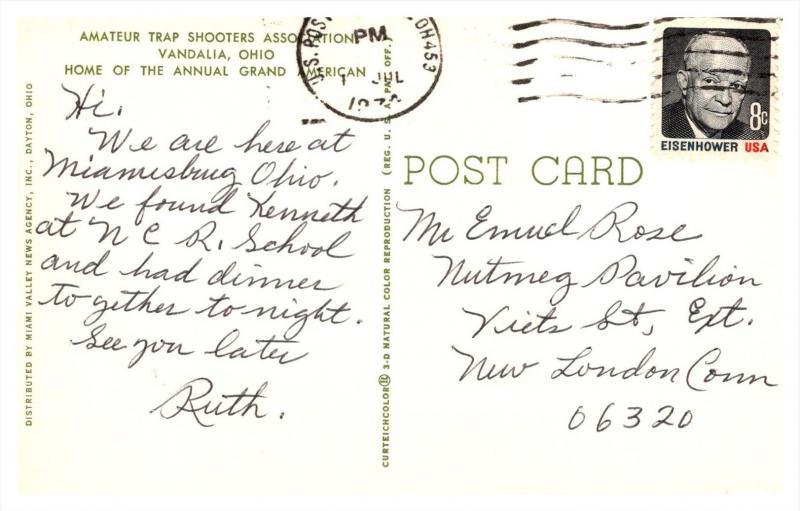 AMATEUR TRAP SHOOTERS ASSOCIATION
VANDALIA, OHIO
HOME OF THE ANNUAL GRAND AMERICAN
Hi.
We are here at
Miamisbug Ohio.
We found Kenneth
at N C R. School
and had dinner
to gether to night.
See you later
Ruth.
DISTRIBUTED BY MIAMI VALLEY NEWS AGENCY, INC., DAYTON, OHIO
CURTEICHCOLOR® 3-D NATURAL COLOR REPRODUCTION (REG. U. S. PAT. OFF.)
U.S. POS
PM
1 JUL
1972
OH453
8c
EISENHOWER USA
POST CARD
Mr Emuel Rose
Nutmeg Pavilion
Viets St, Ext.
New London Conn
06320